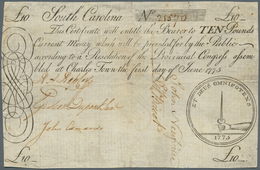 £10 South Carolina No. 21570 £10
This Certificate will entitle the Bearer to TEN Pounds
Current Money which will be provided for by the Public
according to a Resolution of the Provincial Congress assem=
bled at Charles Town the first day of June 1775
ET DEUS OMNIPOTENS
1775
John Edwards
£10 £10